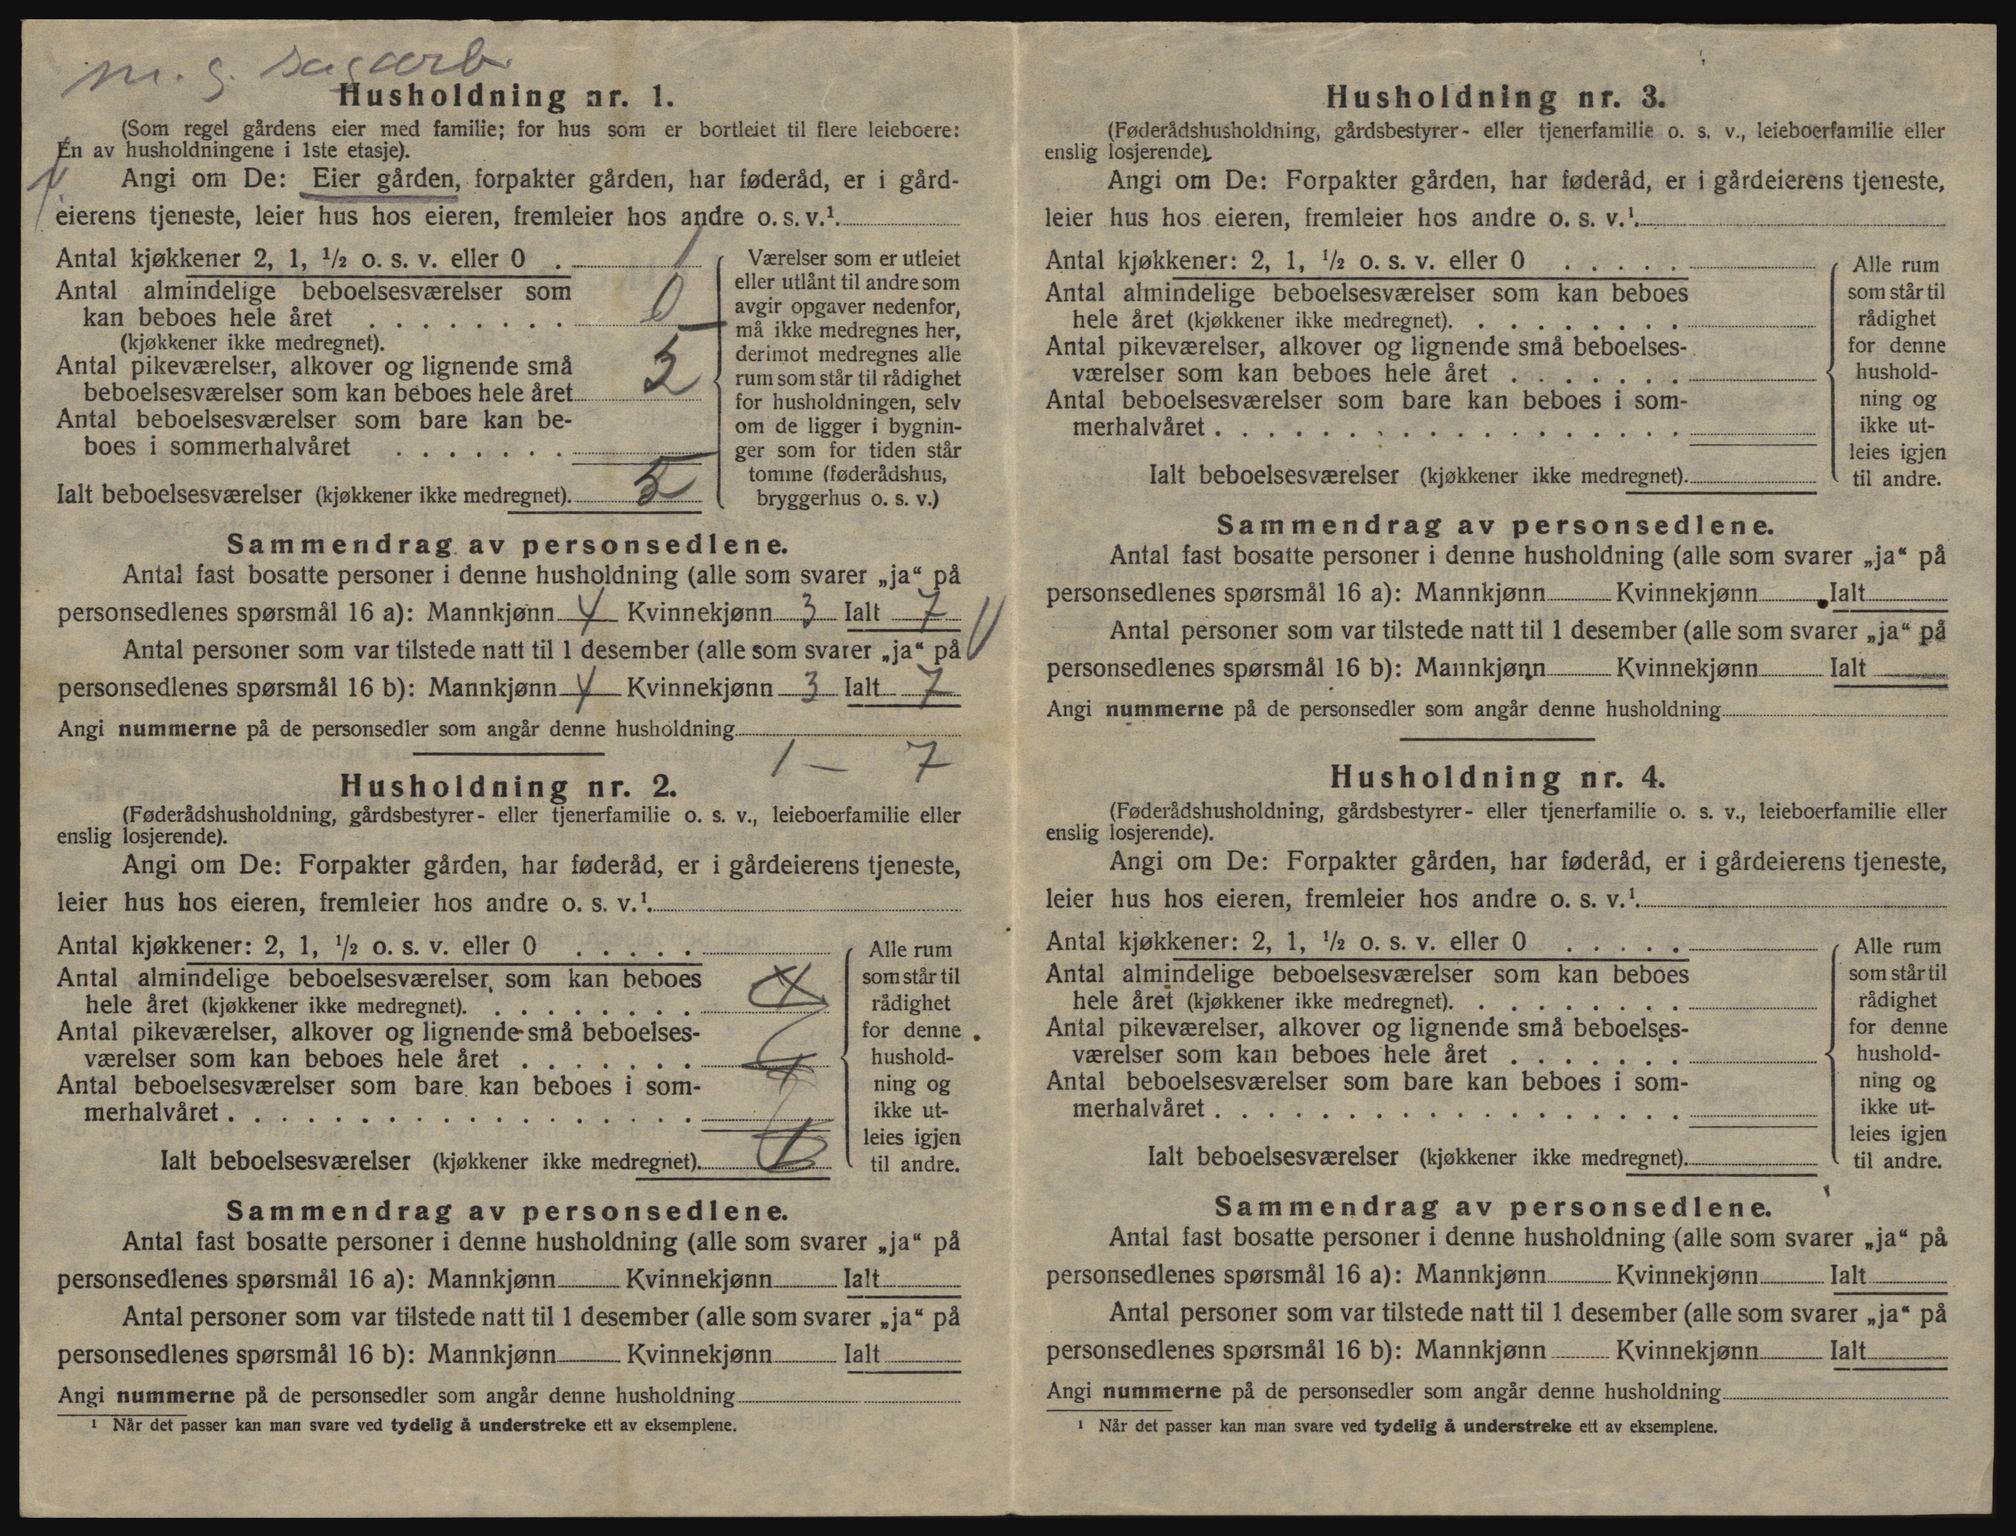 m. g. sagarb.
Husholdning nr. 1.
(Som regel gårdens eier med familie; for hus som er bortleiet til flere leieboere:
Én av husholdningene i 1ste etasje).
Angi om De: Eier gården, forpakter gården, har føderåd, er i gård-
eierens tjeneste, leier hus hos eieren, fremleier hos andre o. s. v.¹.
Antal kjøkkener 2, 1, ½ o. s. v. eller 0 . 1
Antal almindelige beboelsesværelser som
kan beboes hele året . . . . . . . . 0
(kjøkkener ikke medregnet).
Antal pikeværelser, alkover og lignende små
beboelsesværelser som kan beboes hele året 5
Antal beboelsesværelser som bare kan be-
boes i sommerhalvåret . . . . . . .
Ialt beboelsesværelser (kjøkkener ikke medregnet). 5
Værelser som er utleiet
eller utlånt til andre som
avgir opgaver nedenfor,
må ikke medregnes her,
derimot medregnes alle
rum som står til rådighet
for husholdningen, selv
om de ligger i bygnin-
ger som for tiden står
tomme (føderådshus,
bryggerhus o. s. v.)
Sammendrag av personsedlene.
Antal fast bosatte personer i denne husholdning (alle som svarer „ja“ på
personsedlenes spørsmål 16 a): Mannkjønn 4 Kvinnekjønn 3 Ialt 7
Antal personer som var tilstede natt til 1 desember (alle som svarer „ja“ på
personsedlenes spørsmål 16 b): Mannkjønn 4 Kvinnekjønn 3 Ialt 7
Angi nummerne på de personsedler som angår denne husholdning
1 — 7
Husholdning nr. 2.
(Føderådshusholdning, gårdsbestyrer- eller tjenerfamilie o. s. v., leieboerfamilie eller
enslig losjerende).
Angi om De: Forpakter gården, har føderåd, er i gårdeierens tjeneste,
leier hus hos eieren, fremleier hos andre o. s. v.¹.
Antal kjøkkener: 2, 1, ½ o. s. v. eller 0 . . . . .
Antal almindelige beboelsesværelser, som kan beboes
hele året (kjøkkener ikke medregnet). . . . . . . . .
Antal pikeværelser, alkover og lignende små beboelses-
værelser som kan beboes hele året . . . . . . .
Antal beboelsesværelser som bare kan beboes i som-
merhalvåret . . . . . . . . . . . . . . . . . .
Ialt beboelsesværelser (kjøkkener ikke medregnet).
Alle rum
som står til
rådighet
for denne
hushold-
ning og
ikke ut-
leies igjen
til andre.
Sammendrag av personsedlene.
Antal fast bosatte personer i denne husholdning (alle som svarer „ja“ på
personsedlenes spørsmål 16 a): Mannkjønn Kvinnekjønn Ialt
Antal personer som var tilstede natt til 1 desember (alle som svarer „ja“ på
personsedlenes spørsmål 16 b): Mannkjønn Kvinnekjønn Ialt
Angi nummerne på de personsedler som angår denne husholdning
¹ Når det passer kan man svare ved tydelig å understreke ett av eksemplene.
Husholdning nr. 3.
(Føderådshusholdning, gårdsbestyrer- eller tjenerfamilie o. s. v., leieboerfamilie eller
enslig losjerende).
Angi om De: Forpakter gården, har føderåd, er i gårdeierens tjeneste,
leier hus hos eieren, fremleier hos andre o. s. v.¹.
Antal kjøkkener: 2, 1, ½ o. s. v. eller 0 . . . . .
Antal almindelige beboelsesværelser som kan beboes
hele året (kjøkkener ikke medregnet). . . . . . . . .
Antal pikeværelser, alkover og lignende små beboelses-
værelser som kan beboes hele året . . . . . . .
Antal beboelsesværelser som bare kan beboes i som-
merhalvåret . . . . . . . . . . . . . . . . . .
Ialt beboelsesværelser (kjøkkener ikke medregnet).
Alle rum
som står til
rådighet
for denne
hushold-
ning og
ikke ut-
leies igjen
til andre.
Sammendrag av personsedlene.
Antal fast bosatte personer i denne husholdning (alle som svarer „ja“ på
personsedlenes spørsmål 16 a): Mannkjønn Kvinnekjønn Ialt
Antal personer som var tilstede natt til 1 desember (alle som svarer „ja“ på
personsedlenes spørsmål 16 b): Mannkjønn Kvinnekjønn Ialt
Angi nummerne på de personsedler som angår denne husholdning
Husholdning nr. 4.
(Føderådshusholdning, gårdsbestyrer- eller tjenerfamilie o. s. v., leieboerfamilie eller
enslig losjerende).
Angi om De: Forpakter gården, har føderåd, er i gårdeierens tjeneste,
leier hus hos eieren, fremleier hos andre o. s. v.¹.
Antal kjøkkener: 2, 1, ½ o. s. v. eller 0 . . . . .
Antal almindelige beboelsesværelser som kan beboes
hele året (kjøkkener ikke medregnet). . . . . . . . .
Antal pikeværelser, alkover og lignende små beboelses-
værelser som kan beboes hele året . . . . . . .
Antal beboelsesværelser som bare kan beboes i som-
merhalvåret . . . . . . . . . . . . . . . . . .
Ialt beboelsesværelser (kjøkkener ikke medregnet).
Alle rum
som står til
rådighet
for denne
hushold-
ning og
ikke ut-
leies igjen
til andre.
Sammendrag av personsedlene.
Antal fast bosatte personer i denne husholdning (alle som svarer „ja“ på
personsedlenes spørsmål 16 a): Mannkjønn Kvinnekjønn Ialt
Antal personer som var tilstede natt til 1 desember (alle som svarer „ja“ på
personsedlenes spørsmål 16 b): Mannkjønn Kvinnekjønn Ialt
Angi nummerne på de personsedler som angår denne husholdning
¹ Når det passer kan man svare ved tydelig å understreke ett av eksemplene.